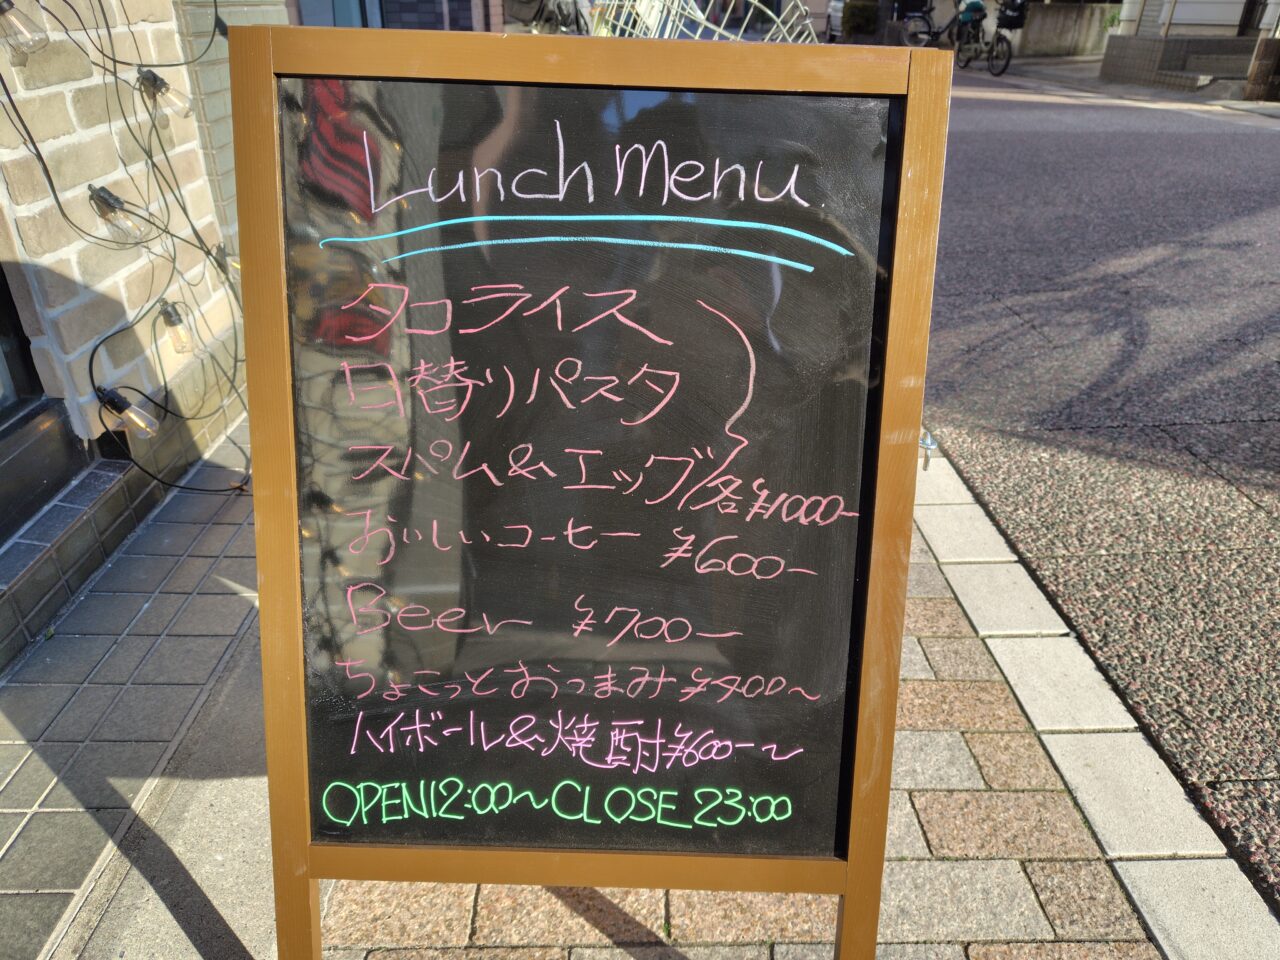 Lunch Menu
タコライス
日替りパスタ
スパム&エッグ 各¥1000-
おいしいコーヒー ¥600-
Beer ¥700-
ちょこっとおつまみ ¥400~
ハイボール&焼酎 ¥600-~
OPEN12:00~CLOSE 23:00